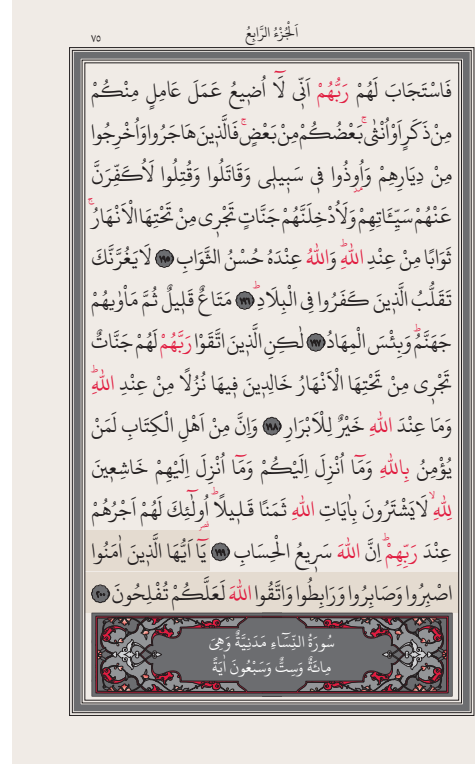 اَلْجُزْءُ الرَّابِعُ
٧٥
فَاسْتَجَابَ لَهُمْ رَبُّهُمْ اَنّ۪ي لَٓا اُض۪يعُ عَمَلَ عَامِلٍ مِنْكُمْ
مِنْ ذَكَرٍ اَوْ اُنْثٰىۚ بَعْضُكُمْ مِنْ بَعْضٍۚ فَالَّذ۪ينَ هَاجَرُوا وَاُخْرِجُوا
مِنْ دِيَارِهِمْ وَاُو۫ذُوا ف۪ي سَب۪يل۪ي وَقَاتَلُوا وَقُتِلُوا لَاُكَفِّرَنَّ
عَنْهُمْ سَيِّـَٔاتِهِمْ وَلَاُدْخِلَنَّهُمْ جَنَّاتٍ تَجْر۪ي مِنْ تَحْتِهَا الْاَنْهَارُۚ
ثَوَابًا مِنْ عِنْدِ اللّٰهِۜ وَاللّٰهُ عِنْدَهُ حُسْنُ الثَّوَابِ ﴿١٩٥﴾ لَا يَغُرَّنَّكَ
تَقَلُّبُ الَّذ۪ينَ كَفَرُوا فِي الْبِلَادِۜ ﴿١٩٦﴾ مَتَاعٌ قَل۪يلٌ ثُمَّ مَأْوٰيهُمْ
جَهَنَّمُۜ وَبِئْسَ الْمِهَادُ ﴿١٩٧﴾ لٰكِنِ الَّذ۪ينَ اتَّقَوْا رَبَّهُمْ لَهُمْ جَنَّاتٌ
تَجْر۪ي مِنْ تَحْتِهَا الْاَنْهَارُ خَالِد۪ينَ ف۪يهَا نُزُلًا مِنْ عِنْدِ اللّٰهِۜ
وَمَا عِنْدَ اللّٰهِ خَيْرٌ لِلْاَبْرَارِ ﴿١٩٨﴾ وَاِنَّ مِنْ اَهْلِ الْكِتَابِ لَمَنْ
يُؤْمِنُ بِاللّٰهِ وَمَٓا اُنْزِلَ اِلَيْكُمْ وَمَٓا اُنْزِلَ اِلَيْهِمْ خَاشِع۪ينَ
لِلّٰهِۙ لَا يَشْتَرُونَ بِاٰيَاتِ اللّٰهِ ثَمَنًا قَل۪يلًاۜ اُو۬لٰٓئِكَ لَهُمْ اَجْرُهُمْ
عِنْدَ رَبِّهِمْۜ اِنَّ اللّٰهَ سَر۪يعُ الْحِسَابِ ﴿١٩٩﴾ يَٓا اَيُّهَا الَّذ۪ينَ اٰمَنُوا
اصْبِرُوا وَصَابِرُوا وَرَابِطُوا وَاتَّقُوا اللّٰهَ لَعَلَّكُمْ تُفْلِحُونَ ﴿٢٠٠﴾
سُورَةُ النِّسَٓاءِ مَدَنِيَّةٌ وَهِيَ
مِائَةٌ وَسِتٌّ وَسَبْعُونَ اٰيَةً